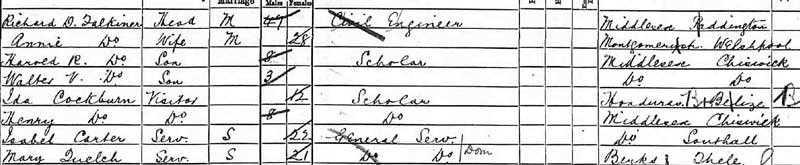 Marriage Males Females
Richard D. Falkiner Head M 47 Civil Engineer Middlesex Paddington
Annie Do Wife M 28 Montgomerysh Welshpool
Harold R. Do Son 8 Scholar Middlesex Chiswick
Walter V. Do Son 3 Do Do
Ida Cockburn Visitor 12 Scholar Honduras Br Belize B
Henry Do Do 8 Do Middlesex Chiswick
Isabel Carter Serv. S 22 General Serv. Do Southall
Mary Quelch Serv. S 21 Do Do Dom Berks Thele